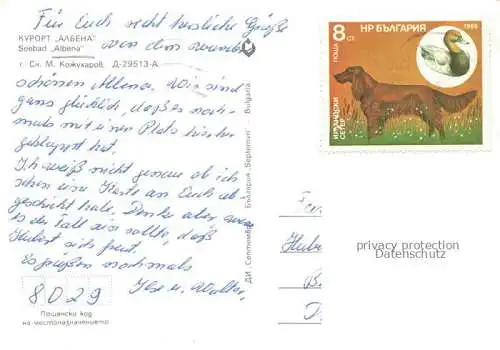 Für Euch recht herzliche Grüße
von dem wunder
schönen Albena. Wir sind
ganz glücklich, daß es noch-
mals mit einem Platz hierher
geklappt hat.
Ich weiß nicht genau ob ich
schon eine Karte an Euch ab-
geschickt habe. Denke aber wenn
es der Fall sein sollte, daß
Hubert sich freut.
Es grüßen nochmals
Ilse u. Walter
КУРОРТ „АЛБЕНА"
Seebad „Albena"
г Сн. М. Кожухаров. Д-29513-А
ДИ „Септември" България „Septemvri" Bulgaria
8 0 2 9
Пощенски код
на местоназначението
8 СТ.
НР БЪЛГАРИЯ
1985
ПОЩА
ИРЛАНДСКИ
СЕТЕР
privacy protection
Datenschutz